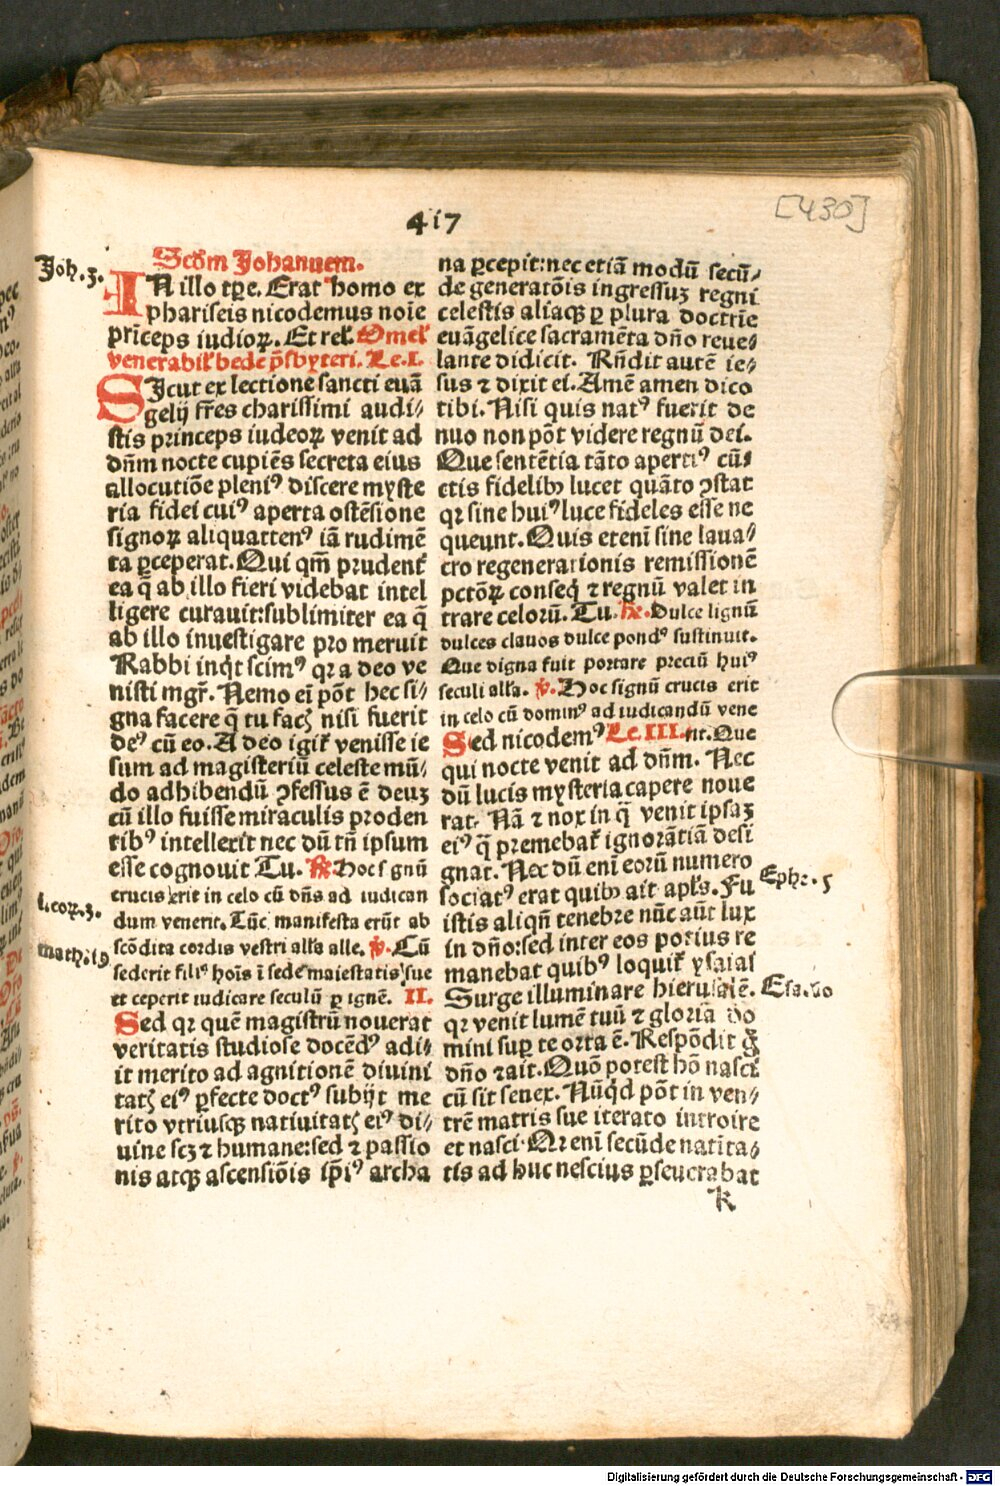 417
[430]
Joh. 3.
Scd̄m Johannem.
IN illo tꝑe. Erat homo ex
phariseis nicodemus noīe
prīceps iudioꝝ. Et rel̄. Omel̄
venerabil̄ bede p̄sbyteri. Le. I.
SIcut ex lectione sancti euā
gelij fr̄es charissimi audi⸗
stis princeps iudeoꝝ venit ad
dn̄m nocte cupiēs secreta eius
allocutiōe pleniꝰ discere myste
ria fidei cuiꝰ aperta ostēsione
signoꝝ aliquattenꝰ iā rudimē
ta ꝑceperat. Qui qm̄ prudent̄
ea q̄ ab illo fieri videbat intel
ligere curauit:sublimiter ea q̄
ab illo inuestigare pro meruit
Rabbi inq̇t scimꝰ qꝛ a deo ve
nisti mgr̄. Nemo ei̅ pōt hec si⸗
gna facere q̄ tu facꝭ nisi fuerit
deꝰ cū eo. A deo igit̄ venisse ie
sum ad magisteriū celeste mū⸗
do adhibendū ꝯfessus ē deuꝫ
cū illo fuisse miraculis proden
tibꝰ intellexit nec dū tn̄ ipsum
esse cognouit Tu. ℟. Hoc s gnū
crucis erit in celo cū dn̄s ad iudican
dum venerit. Tūc manifesta erūt ab
scōdita cordis vestri alľa alle. ℣. Cū
sederit filiꝰ hoīs ī sede maiestatis sue
et ceperit iudicare seculū ꝑ ignē. II.
Sed qꝛ quē magistrū nouerat
veritatis studiose docēdꝰ adi⸗
it merito ad agnitionē diuini
tatꝭ eiꝰ ꝑfecte doctꝰ subijt me
rito vtriusqꝫ natiuitatꝭ eiꝰ di⸗
uine scꝫ ⁊ humane:sed ⁊ passio
nis atqꝫ ascensiōis ip̄iꝰ archa
i.coꝝ.3.
math.19
na ꝑcepit:nec etiā modū secū⸗
de generatōis ingressuꝫ regni
celestis aliaqꝫ ꝑ plura doctrīe
euāgelice sacramēta dn̄o reue⸗
lante didicit. Rn̄dit autē ie⸗
sus ⁊ dixit ei. Amē amen dico
tibi. Nisi quis natꝰ fuerit de
nuo non pōt videre regnū dei.
Que sentētia tāto apertiꝰ cū⸗
ctis fidelibꝫ lucet quāto ꝯstat
qꝛ sine huiꝰ luce fideles esse ne
queunt. Quis etenī sine laua⸗
cro regenerationis remissionē
pctōꝝ conseq̇ ⁊ regnū valet in
trare celorū. Tu. ℟. Dulce lignū
dulces clauos dulce pondꝰ sustinuit.
Que digna fuit portare preciū huiꝰ
seculi alľa. ℣. Hoc signū crucis erit
in celo cū dominꝰ ad iudicandū vene
Sed nicodemꝰ Le. III. rit. Que
qui nocte venit ad dn̄m. Nec
dū lucis mysteria capere noue
rat. Nā ⁊ nox in q̄ venit ipsaꝫ
eiꝰ q̄ premebat̄ ignorātiā desi
gnat. Nec dū enī eorū numero
sociatꝰ erat quibꝫ ait apľs. Fu
istis aliqn̄ tenebre nūc aūt lux
in dn̄o:sed inter eos potius re
manebat quibꝰ loquit̄ ysaias
Surge illuminare hierusalē.
qꝛ venit lumē tuū ⁊ gloria do
mini suꝑ te orta ē. Respōdit g̊
dn̄o ⁊ait. Quō potest hō nasci
cū sit senex. Nūq̇d pōt in ven⸗
trē matris sue iterato introire
et nasci. Qꝛ enī secūde natīta⸗
tis ad huc nescius ꝑseuerabat
Ephe. 5
Esa. 60
k
Digitalisierung gefördert durch die Deutsche Forschungsgemeinschaft - DFG